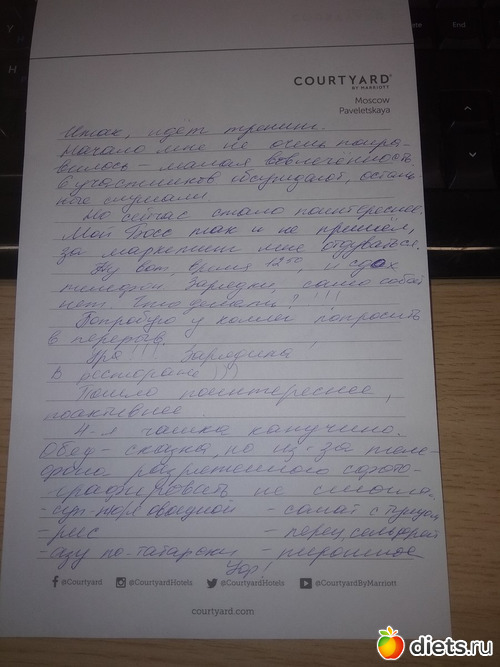 End
COURTYARD®
BY MARRIOTT
Moscow
Paveletskaya
Итак, идет тренинг.
Начало мне не очень понра-
вилось – малая вовлеченность
6 участников обсуждают, осталь-
ные слушали.
Но сейчас стало поинтереснее.
Мой Босс так и не пришел,
за маркетинг мне отдуваться.
Ну вот, время 12⁵⁰, и сдох
телефон. Зарядки, само собой
нет. Что делать? !!!
Попробую у коллег попросить
в перерыв.
Ура!!!! Зарядила!
В ресторане )))
Пошло поинтереснее,
поактивнее.
4-я чашка капучино.
Обед – сказка, но из-за теле-
фона разряженного сфото-
графировать не смогла.
- суп-пюре овощной - салат с тунцом
- рис - перец, сельдерей
- азу по-татарски - пирожное
Ура!
@Courtyard @CourtyardHotels @CourtyardHotels @CourtyardByMarriott
courtyard.com
diets.ru